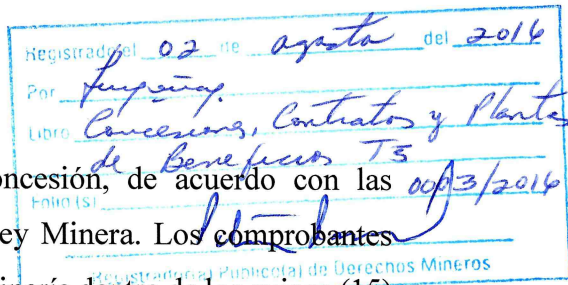 Registrado el 02 de agosto del 2016
Por
Libro Concesiones, Contratos y Plantas
de Beneficios T5
oncesión, de acuerdo con las
Folio (s) 0003/2016
ey Minera. Los comprobantes
Registrador(a) Público(a) de Derechos Mineros
(15)